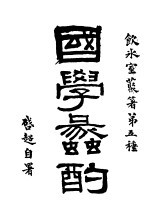 飲氷室叢著第五種
國學蠡酌
啓超自署